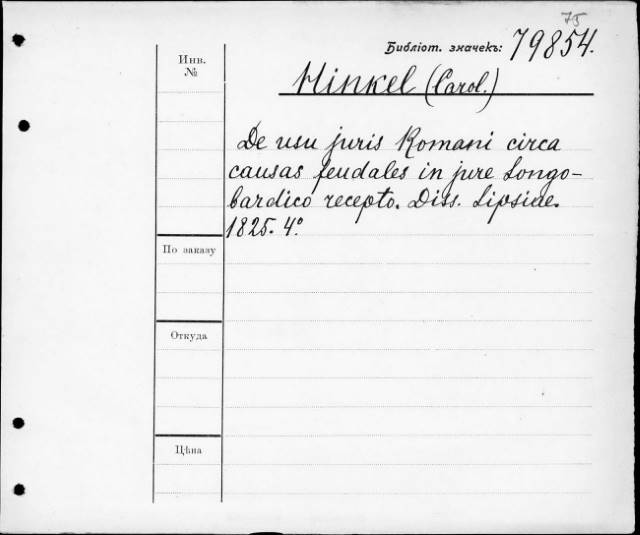 75
Библіот. значекъ: 79854.
Инв.
№
Hinkel (Carol.)
De usu juris Romani circa
causas feudales in jure Longo-
bardico recepto. Diss. Lipsiae.
1825. 4°
По заказу
Откуда
Цѣна